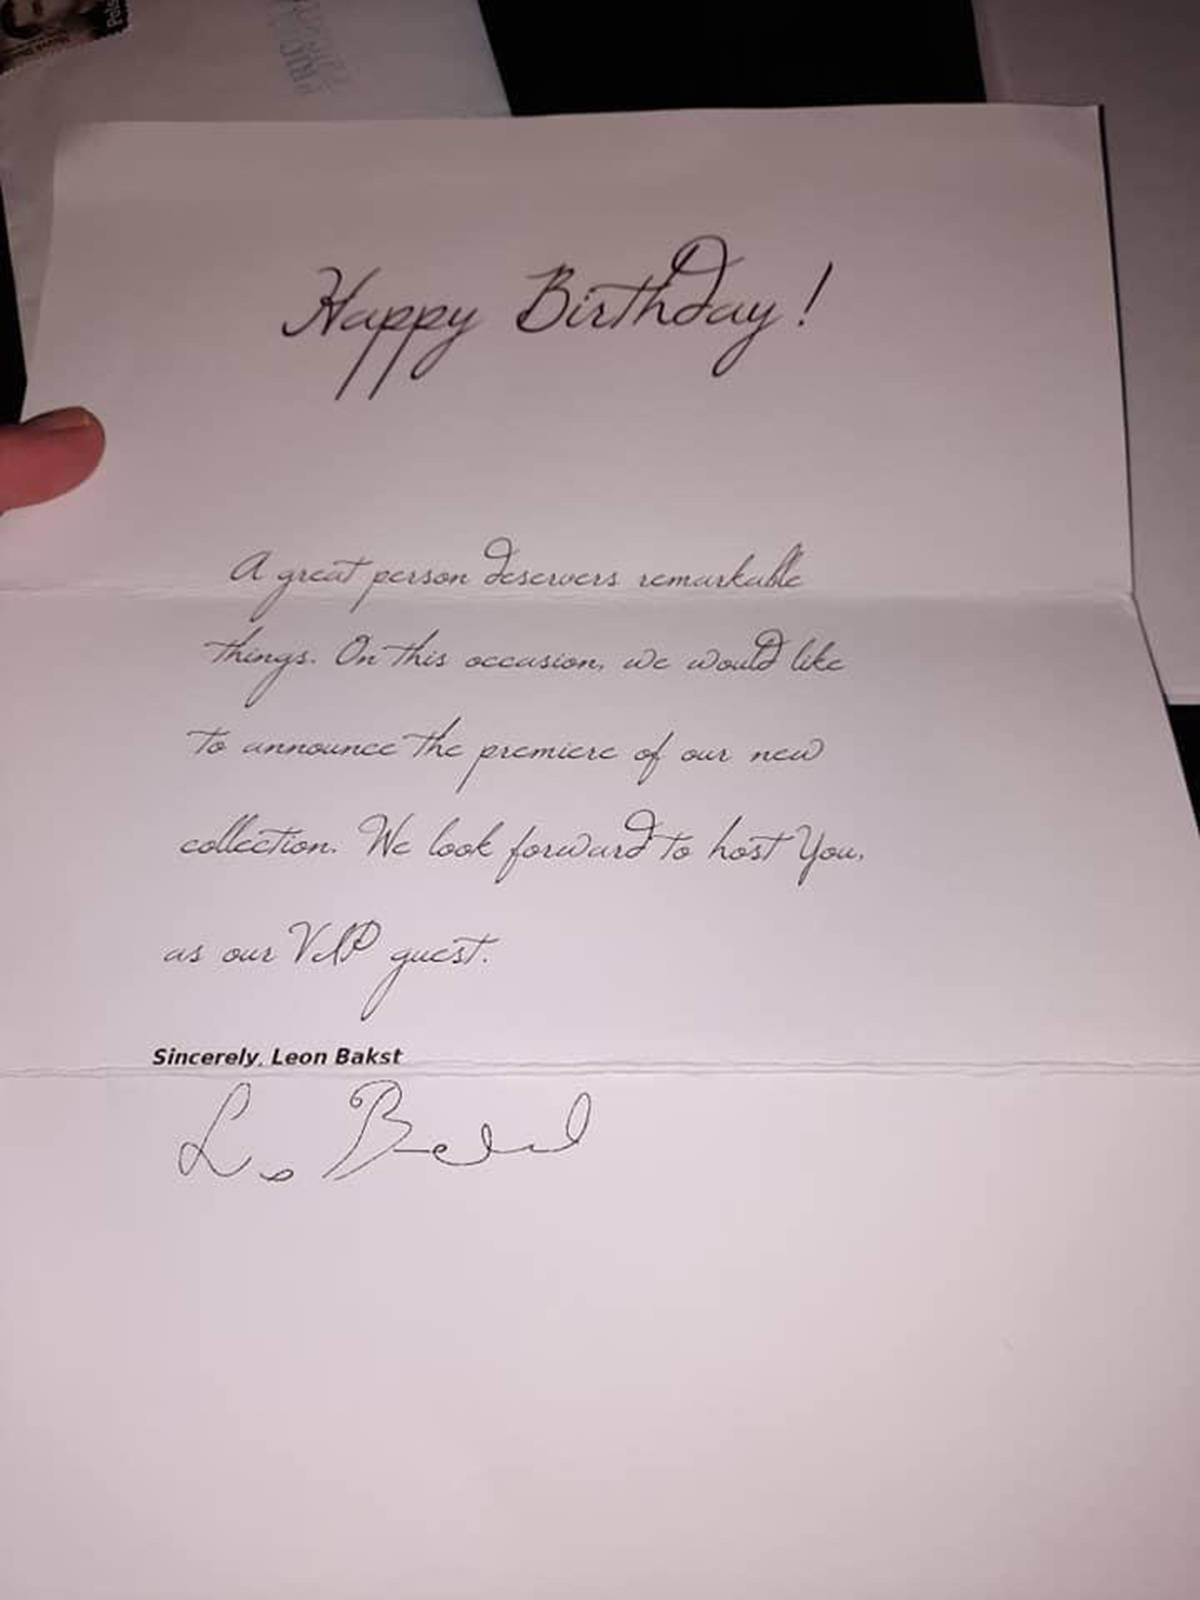 Pols
Happy Birthday!
A great person deservers remarkable
things. On this occasion, we would like
to announce the premiere of our new
collection. We look forward to host You,
as our VIP guest.
Sincerely, Leon Bakst